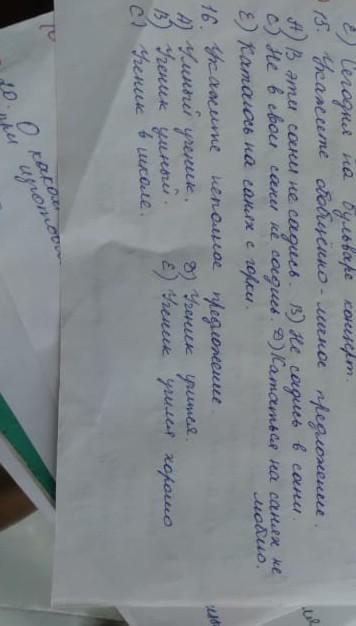 Е) Сегодня на бульваре концерт.
15. Укажите обобщённо-личное предложение.
А) В эти сани не садись. В) Не садись в сани.
С) Не в свои сани не садись. Д) Кататься на санях не люблю.
Е) Катаюсь на санях с горки.
16. Укажите неполное предложение.
А) Умный ученик. Д) Ученик учится.
В) Ученик умный. Е) Ученик учился хорошо
С) Ученик в школе.
20. О каком
при
изготов